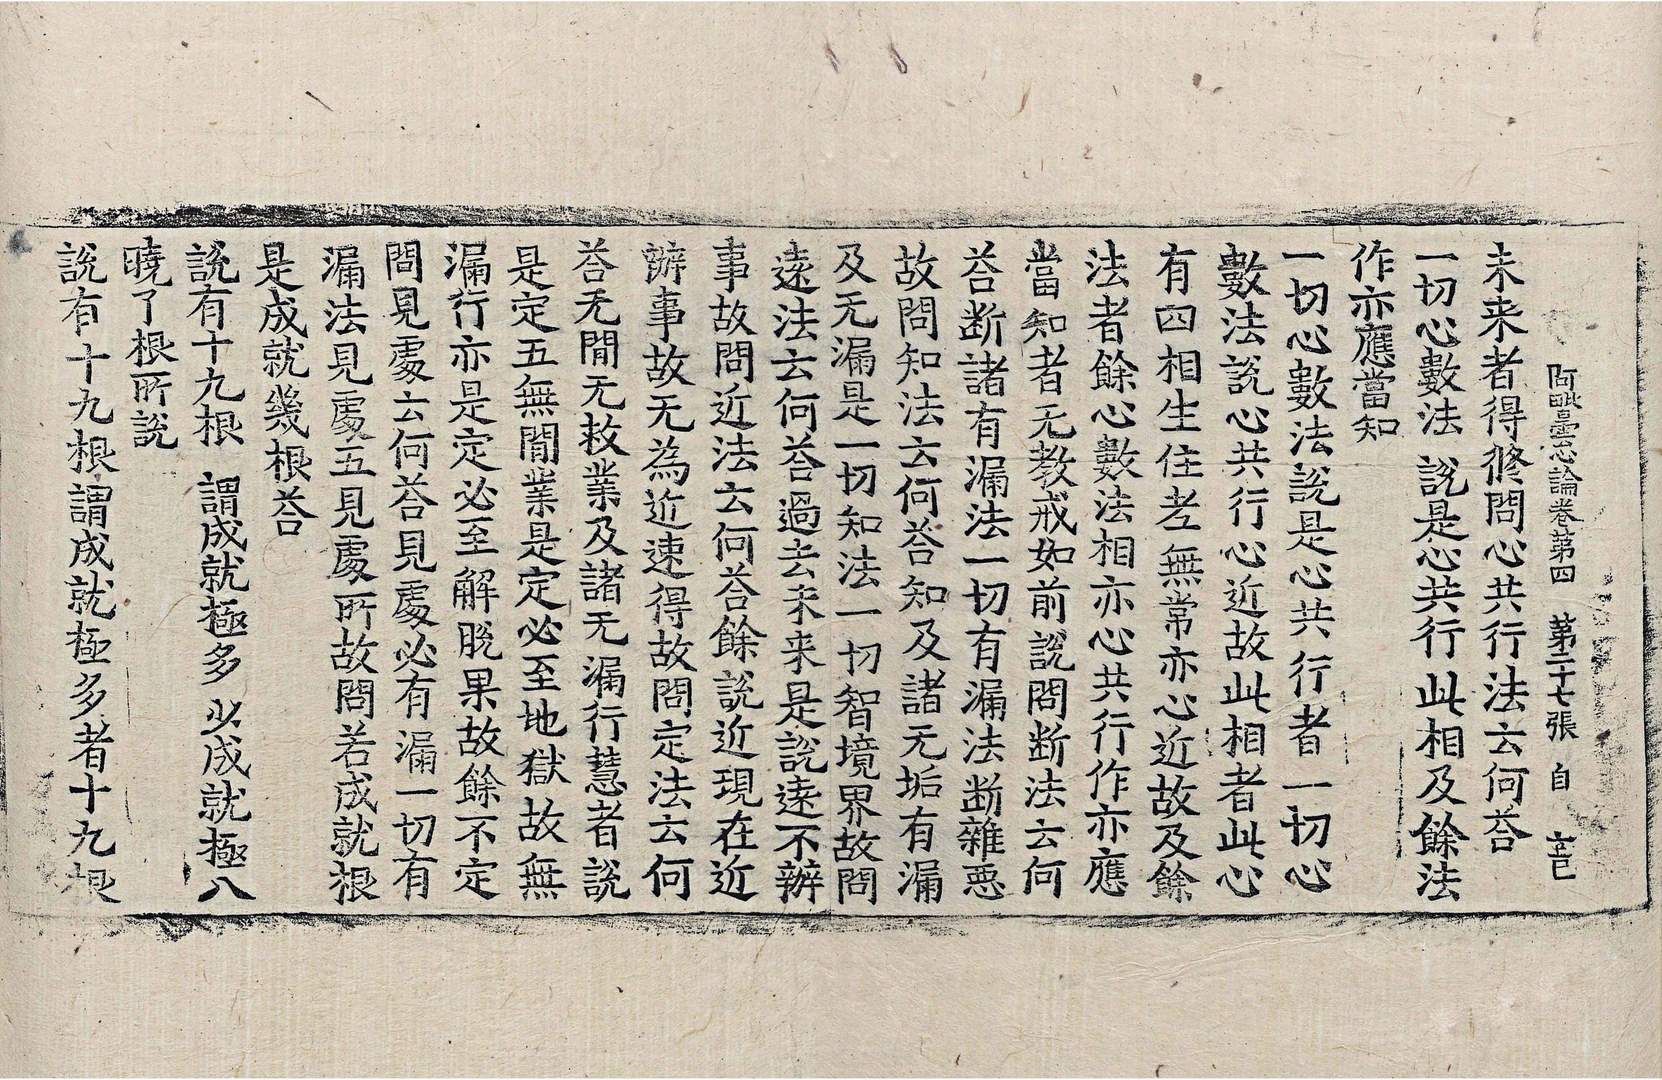 阿毗曇心論卷第四　第二十七張　自
未来者得修問心共行法云何荅
一切心數法　說是心共行此相及餘法
作亦應當知
一切心數法說是心共行者一切心
數法說心共行心近故此相者此心
有四相生住老無常亦心近故及餘
法者餘心數法相亦心共行作亦應
當知者无教戒如前說問断法云何
荅断諸有漏法一切有漏法断雜惡
故問知法云何荅知及諸无垢有漏
及无漏是一切知法一切智境界故問
遠法云何荅過去未来是說遠不辦
事故問近法云何荅餘說近現在近
辦事故无為近速得故問定法云何
荅无間无救業及諸无漏行慧者說
是定五無間業是定必至地獄故無
漏行亦是定必至解脫果故餘不定
問見處云何荅見處必有漏一切有
漏法見處五見處所故問若成就根
是成就幾根荅
說有十九根　謂成就極多　少成就極八
曉了根所說
說有十九根謂成就極多者十九根